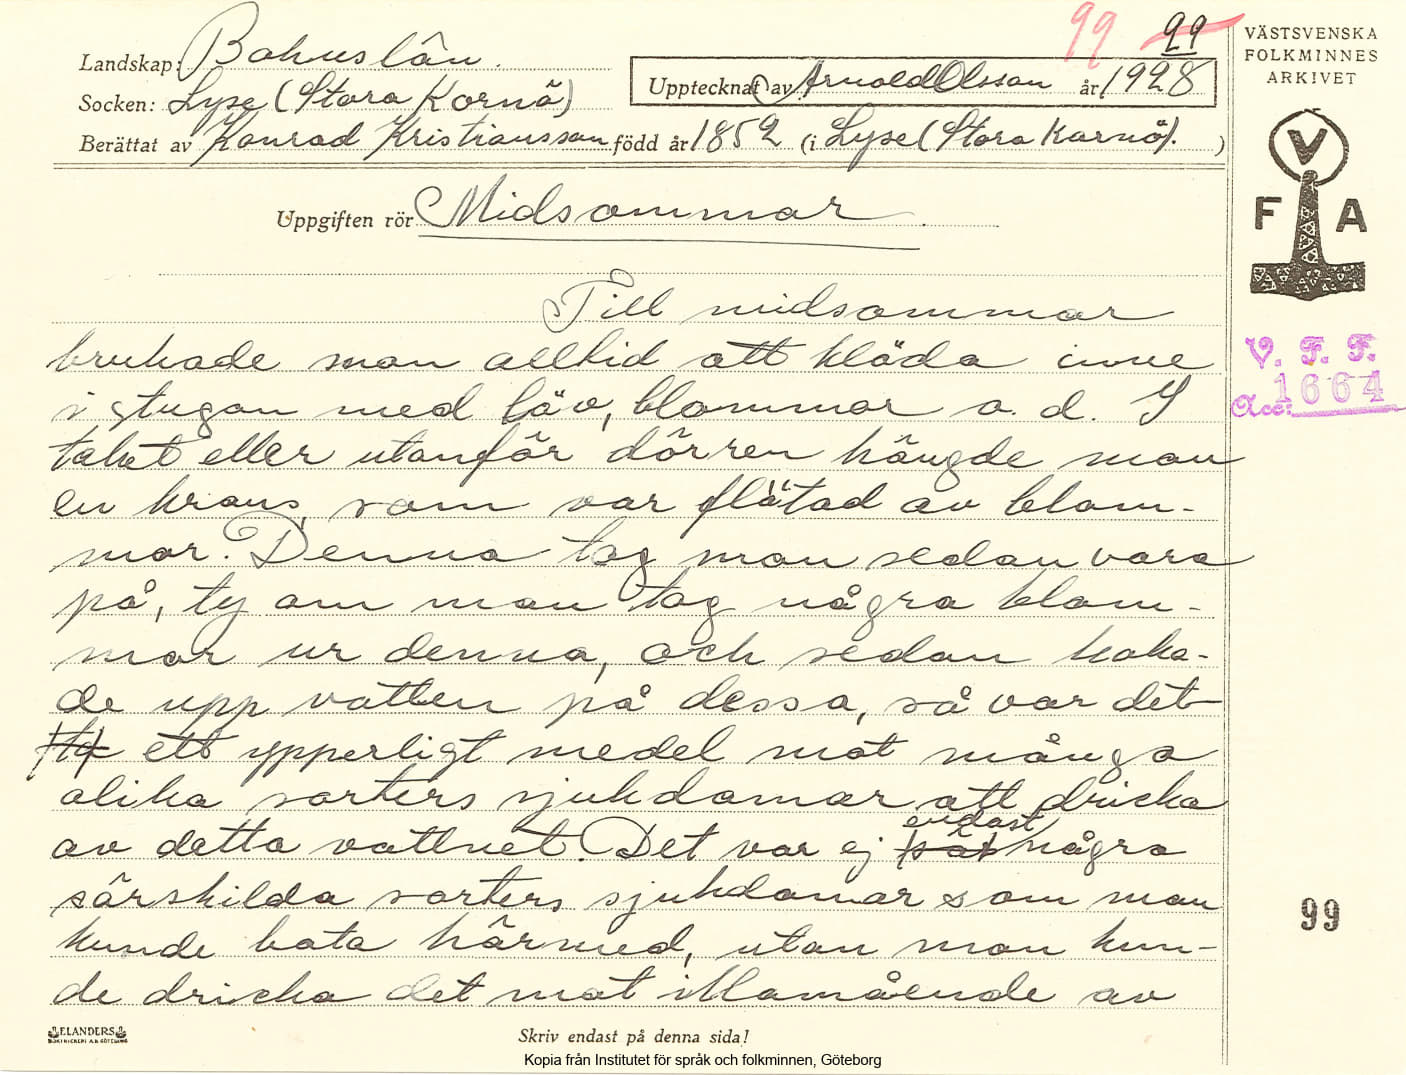 99 99
Landskap: Bohuslän.
Socken: Lyse (Stora Kornö)
Upptecknat av Arnold Olsson år 1928
Berättat av Konrad Kristiansson född år 1852 (i Lyse (Stora Kornö). )
VÄSTSVENSKA
FOLKMINNES
ARKIVET
V
F A
V. F. F.
Acc: 1664
Uppgiften rör Midsommar.
Till midsommar
brukade man alltid att kläda inne
i stugan med löv, blommor o. d. I
taket eller utanför dörren hängde man
en krans, som var flätad av blom-
mor. Denna tog man sedan vara
på, ty om man tog några blom-
mor ur denna, och sedan koka-
de upp vatten på dessa, så var det
ett ypperligt medel mot många
olika sorters sjukdomar att dricka
av detta vattnet. Det var ej endast några
särskilda sorters sjukdomar som man
kunde bota härmed, utan man kun-
de dricka det mot illamående av
99
ELANDERS
BOKTRYCKERI A.B. GÖTEBORG
Skriv endast på denna sida!
Kopia från Institutet för språk och folkminnen, Göteborg